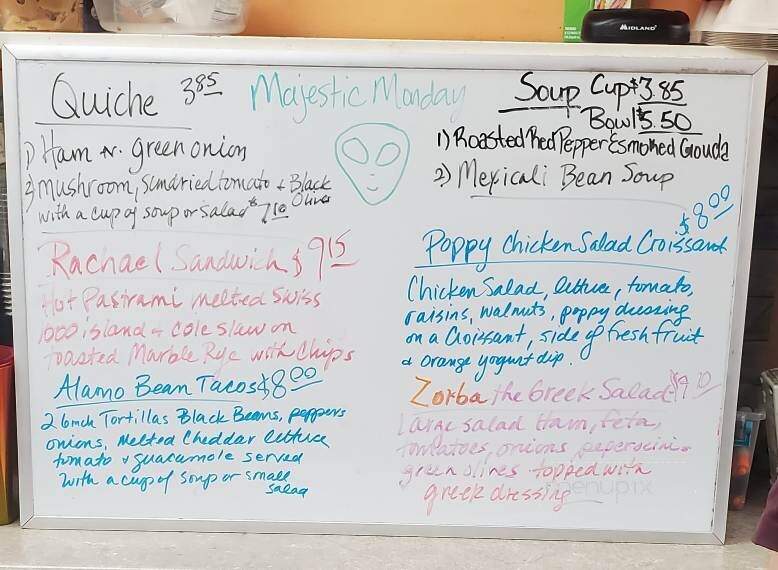 MIDLAND
Quiche 3.85
Majestic Monday
1) Ham + green onion
2) Mushroom, Sundried tomato + Black Olives
with a cup of soup or salad $7.10
Soup Cup $3.85
Bowl $5.50
1) Roasted Red Pepper & smoked Gouda
2) Mexicali Bean Soup
Rachael Sandwich $9.15
Hot Pastrami melted Swiss
1000 island + cole slaw on
toasted Marble Rye with Chips
Alamo Bean Tacos $8.00
2 6inch Tortillas Black Beans, peppers
onions, melted Cheddar lettuce
tomato + guacamole served
with a cup of soup or small
salad
$8.00
Poppy Chicken Salad Croissant
Chicken Salad, lettuce, tomato,
raisins, walnuts, poppy dressing
on a Croissant, side of fresh fruit
& orange yogurt dip.
Zorba the Greek Salad $9.10
Large salad Ham, feta,
tomatoes, onions, peperocini +
green olives topped with
greek dressing
menupix